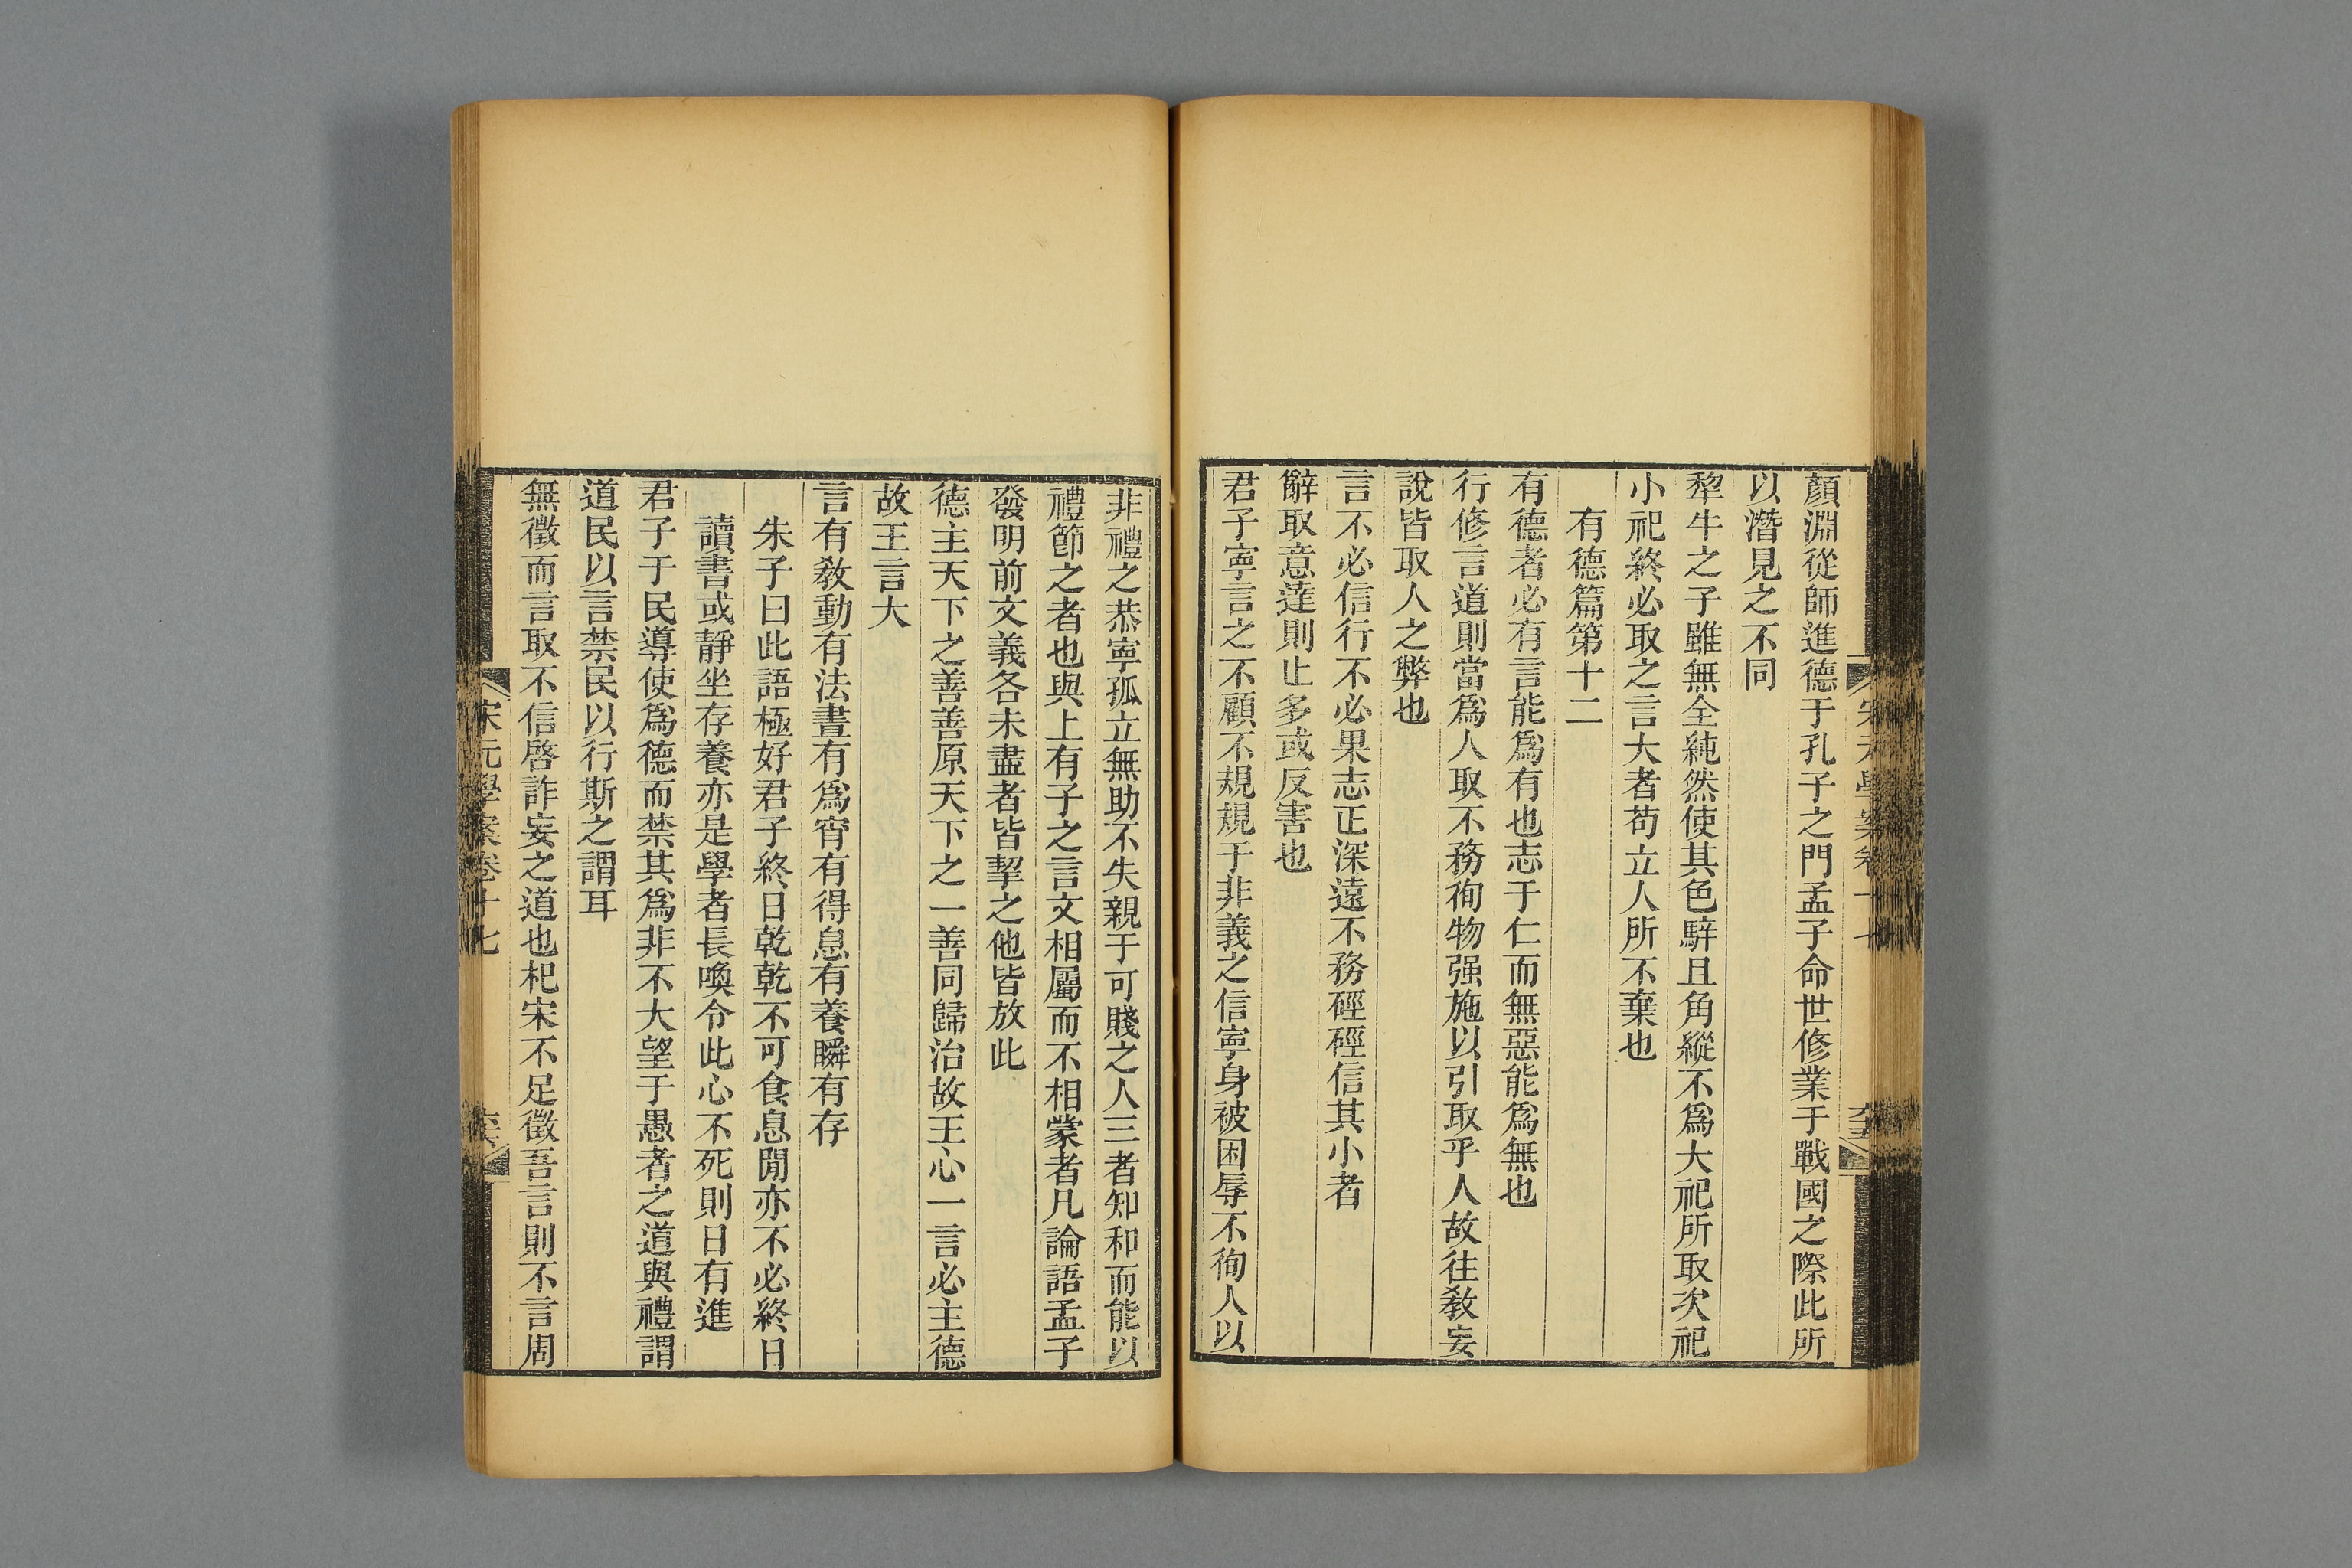 顏淵從師進德于孔子之門孟子命世修業于戰國之際此所
以潛見之不同
犂牛之子雖無全純然使其色騂且角縱不爲大祀所取次祀
小祀終必取之言大者苟立人所不棄也
有德篇第十二
有德者必有言能爲有也志于仁而無惡能爲無也
行修言道則當爲人取不務徇物强施以引取乎人故往敎妄
說皆取人之弊也
言不必信行不必果志正深遠不務硜硜信其小者
辭取意達則止多或反害也
君子寧言之不顧不規規于非義之信寧身被困辱不徇人以
非禮之恭寧孤立無助不失親于可賤之人三者知和而能以
禮節之者也與上有子之言文相屬而不相蒙者凡論語孟子
發明前文義各未盡者皆挈之他皆放此
德主天下之善善原天下之一善同歸治故王心一言必主德
故王言大
言有敎動有法晝有爲宵有得息有養瞬有存
朱子曰此語極好君子終日乾乾不可食息閒亦不必終日
讀書或靜坐存養亦是學者長喚令此心不死則日有進
君子于民導使爲德而禁其爲非不大望于愚者之道與禮謂
道民以言禁民以行斯之謂耳
無徵而言取不信啓詐妄之道也杞宋不足徵吾言則不言周
宋元學案卷十七